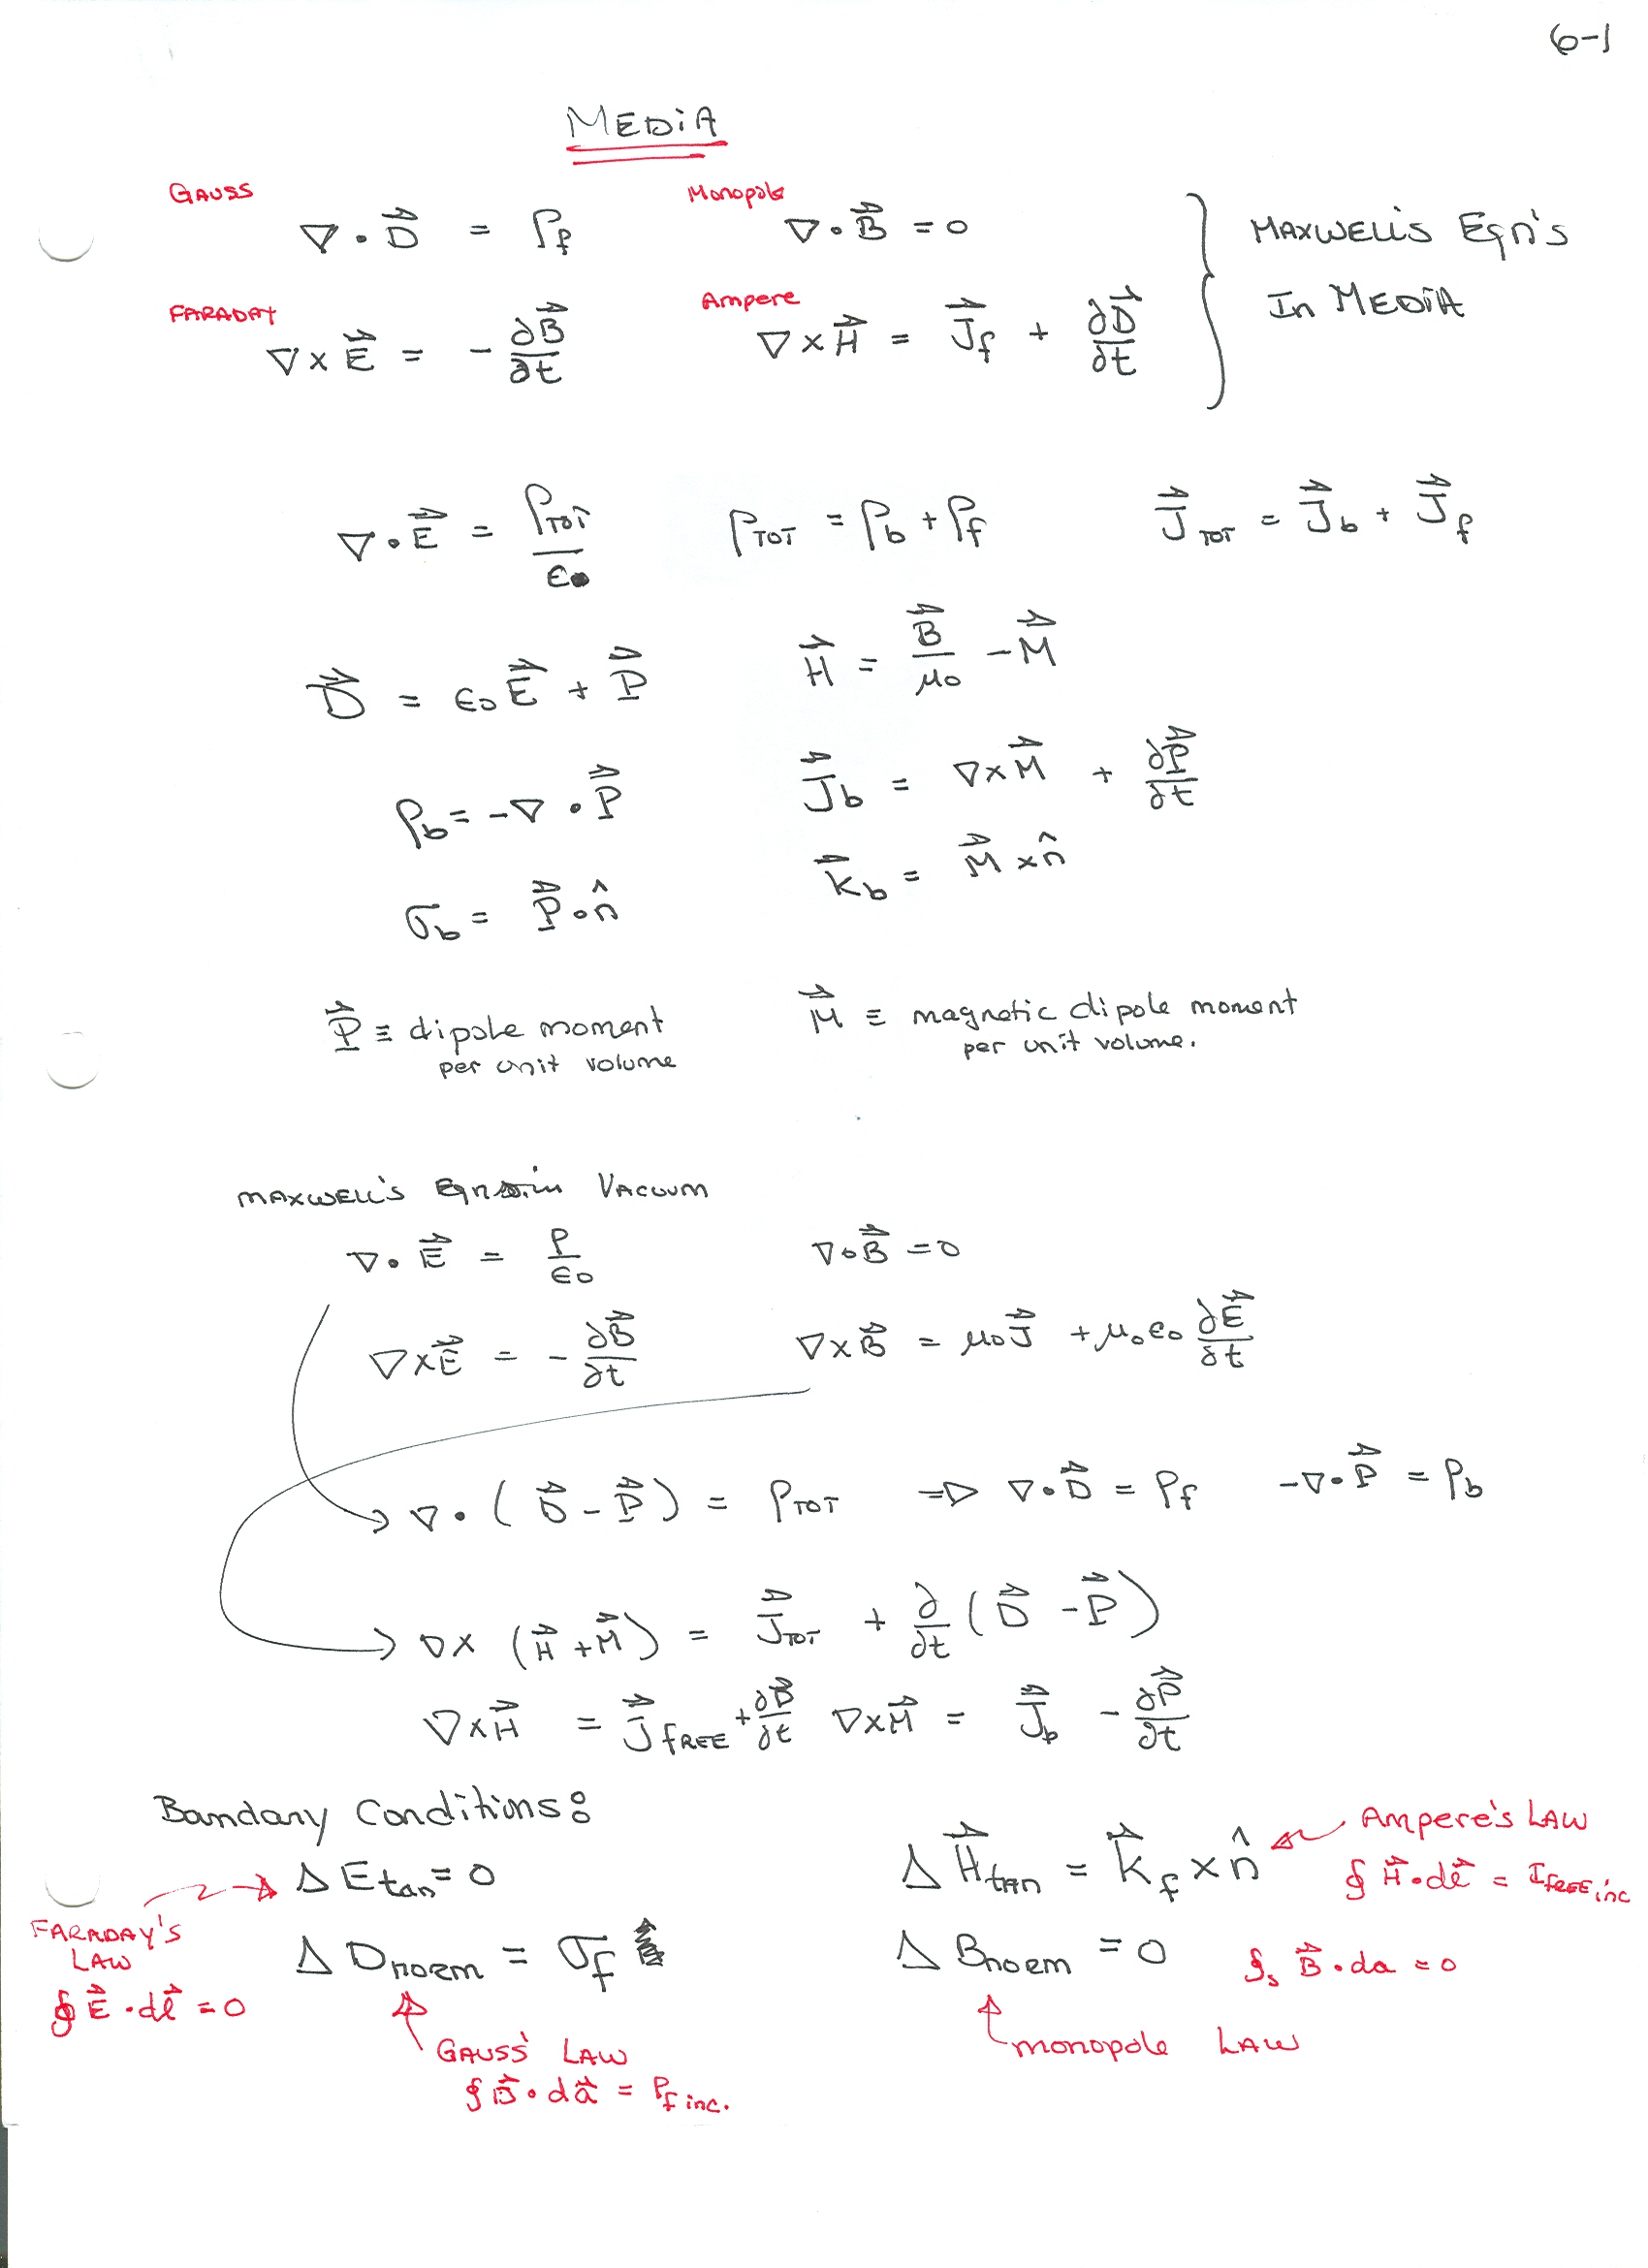 6-1
MEDIA
GAUSS
∇·D⃗ = ρ_f
Monopole
∇·B⃗ = 0
MAXWELL'S Eqn's
In MEDIA
FARADAY
∇×E⃗ = -∂B⃗/∂t
Ampere
∇×H⃗ = J⃗_f + ∂D⃗/∂t
∇·E⃗ = ρ_TOT/ε₀   ρ_TOT = ρ_b + ρ_f   J⃗_TOT = J⃗_b + J⃗_f
D⃗ = ε₀E⃗ + P⃗   H⃗ = B⃗/μ₀ - M⃗
ρ_b = -∇·P⃗   J⃗_b = ∇×M⃗ + ∂P⃗/∂t
σ_b = P⃗·n̂   K⃗_b = M⃗ × n̂
P⃗ ≡ dipole moment
per unit volume
M⃗ ≡ magnetic dipole moment
per unit volume.
MAXWELL'S Eqns in VACUUM
∇·E⃗ = ρ/ε₀   ∇·B⃗ = 0
∇×E⃗ = -∂B⃗/∂t   ∇×B⃗ = μ₀J⃗ + μ₀ε₀ ∂E⃗/∂t
∇·(D⃗ - P⃗) = ρ_TOT ⇒ ∇·D⃗ = ρ_f   -∇·P⃗ = ρ_b
∇×(H⃗ + M⃗) = J⃗_TOT + ∂/∂t (D⃗ - P⃗)
∇×H⃗ = J⃗_FREE + ∂D⃗/∂t   ∇×M⃗ = J⃗_b - ∂P⃗/∂t
Boundary Conditions:
ΔE_tan = 0
ΔH⃗_tan = K⃗_f × n̂
AMPERE'S LAW
∮H⃗·dℓ⃗ = I_FREE inc
FARADAY'S
LAW
∮E⃗·dℓ⃗ = 0
ΔD_norm = σ_f
ΔB_norm = 0
∮_s B⃗·da = 0
GAUSS' LAW
∮D⃗·da⃗ = ρ_f inc.
monopole LAW